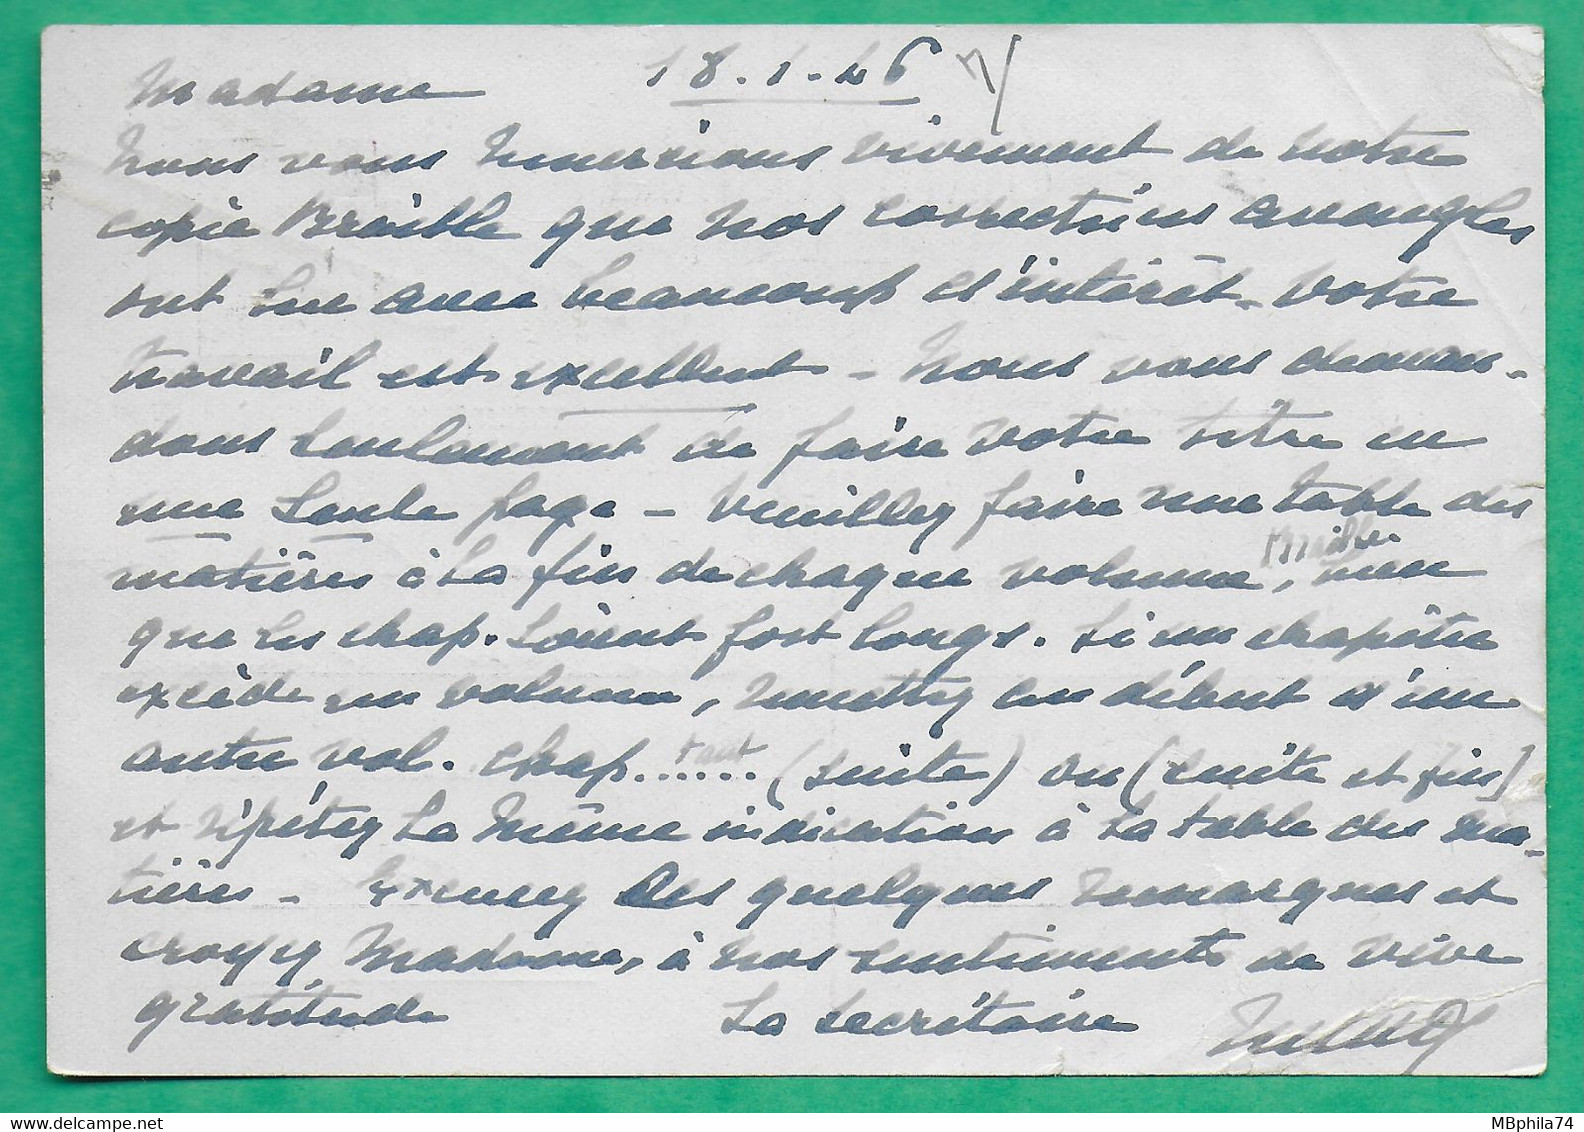 18.1.46
Madame
Nous vous remercions vivement de votre
copie Braille que nos correctrices aveugles
ont lue avec beaucoup d'intérêt. Votre
travail est excellent - Nous vous deman-
dons seulement de faire votre titre en
une seule page - Veuillez faire une table des
matières à la fin de chaque volume Braille, bien
que les chap. soient fort longs. Si un chapitre
excède un volume, mettez au début d'un
autre vol. chap. tant ...... (suite) ou (suite et fin)
et répétez la même indication à la table des ma-
tières - Excusez ces quelques remarques et
croyez, Madame, à nos sentiments de vive
gratitude La secrétaire
MBphila74
www.delcampe.net